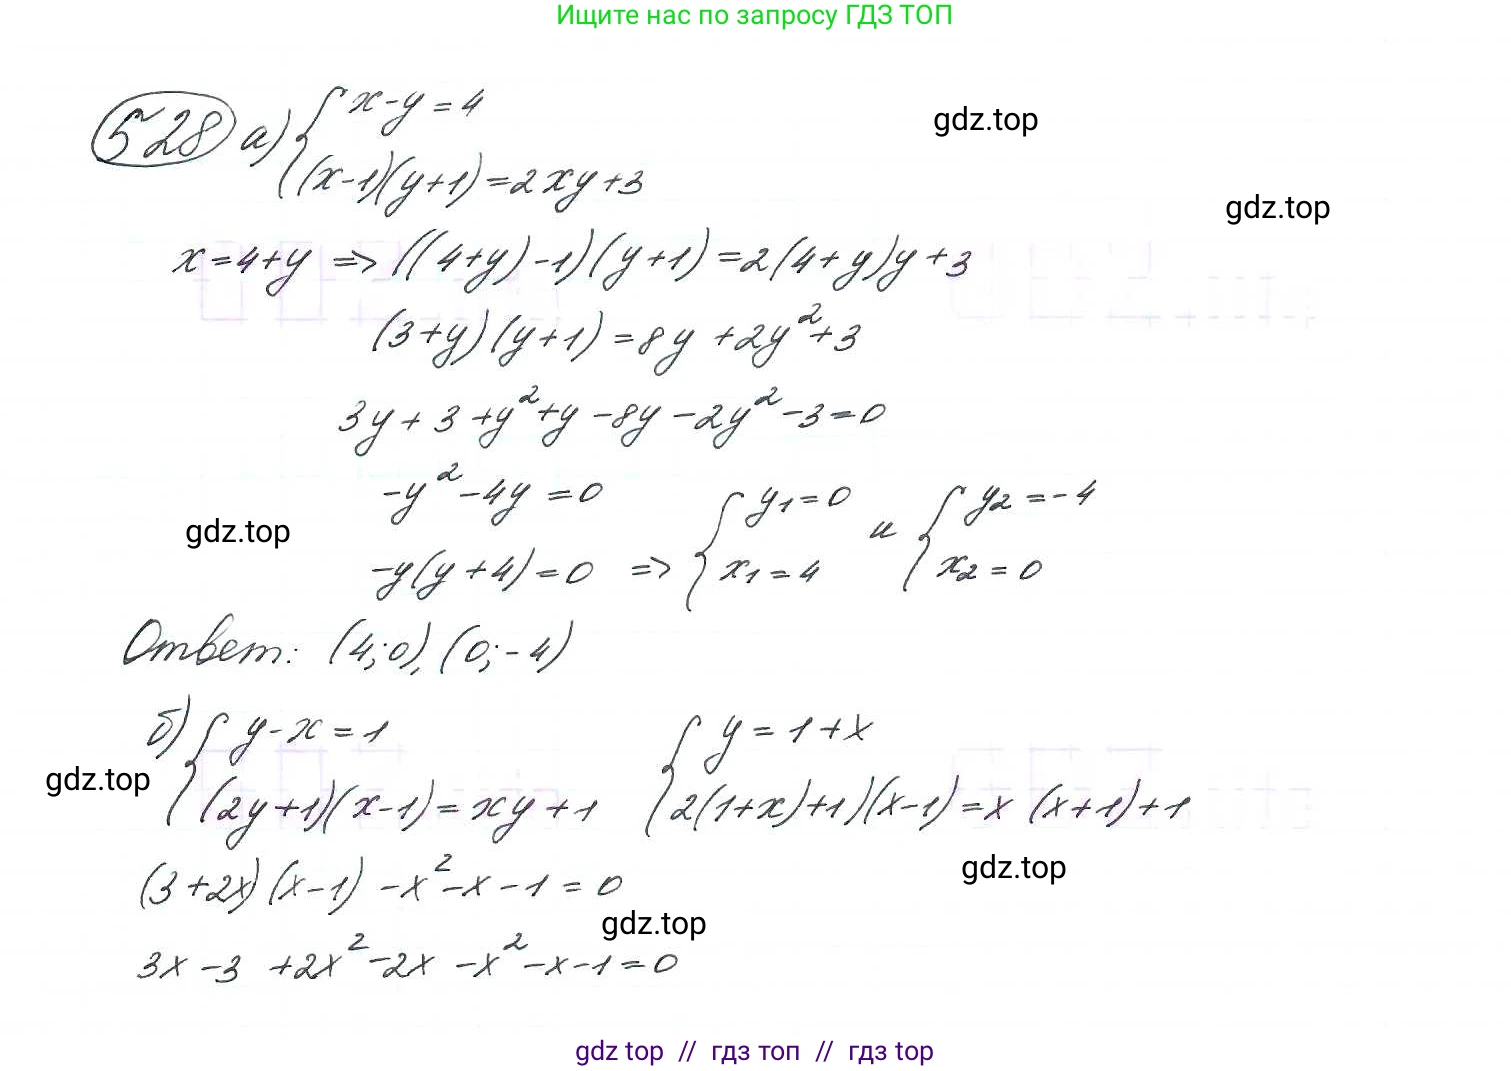 Ищите нас по запросу ГДЗ ТОП
528 а) { x-y=4
(x-1)(y+1)=2xy+3
gdz.top
gdz.top
x=4+y => ((4+y)-1)(y+1)=2(4+y)y+3
(3+y)(y+1)=8y+2y²+3
3y+3+y²+y-8y-2y²-3=0
-y²-4y=0
gdz.top
-y(y+4)=0 => { y₁=0 x₁=4 и { y₂=-4 x₂=0
Ответ: (4;0), (0;-4)
б) { y-x=1 { y=1+x
gdz.top
(2y+1)(x-1)=xy+1 2(1+x)+1)(x-1)=x(x+1)+1
gdz.top
(3+2x)(x-1)-x²-x-1=0
gdz.top
3x-3+2x²-2x-x²-x-1=0
gdz top // гдз топ // гдз top